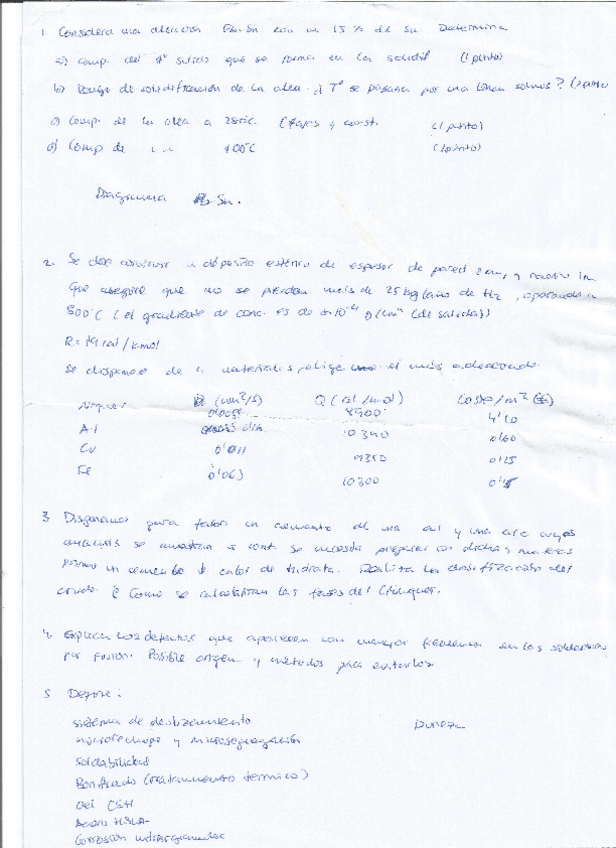 1 Considera una aleación Pb-Sn con un 15 % de Sn Determina
a) comp. del 1er solido que se forma en la solidif (1 punto)
b) Rango de solidificación de la alea. ¿ Tª se pasaria por una línea solvus? (1 punto)
c) Comp. de la alea a 280ºC. (fases y const. (1 punto)
d) Comp de " " 100ºC (1 punto)
Diagrama Pb-Sn.
2. Se construir un depósito esférico de espesor de pared 2 cm, y
que asegure que no se pierdan más de 25 kg/año de H2, operando a
500ºC (el gradiente de conc. es de g/cm (de salida))
R = cal/kmol
Se dispone de 4 materiales, elige el más adecuado.
(cm²/s) Q (cal/mol) Coste/m²
Níquel 0'0055 8900 4'10
Al 10340 0'60
Cu 0'011 9380 0'15
Fe 0'063 10300
3. Disponemos para fabr. un cemento de una cal y una arc cuyos
análisis se muestran a cont. Se necesita preparar con dichas materias
primas un cemento ↓ calor de hidrata. Realiza la dosificación del
crudo. ¿ Como se calcularian las fases del Clinquer.
4. Explica los defectos que aparecen con mayor frecuencia en las soldaduras
por fusión. Posible origen y métodos para evitarlos
5 Define:
sistema de deslizamiento Dureza
microrechupe y microsegregación
Soldabilidad
Bonificado (tratamiento termico)
Gel CSH
Acero HSLA
Corrosion intergranular